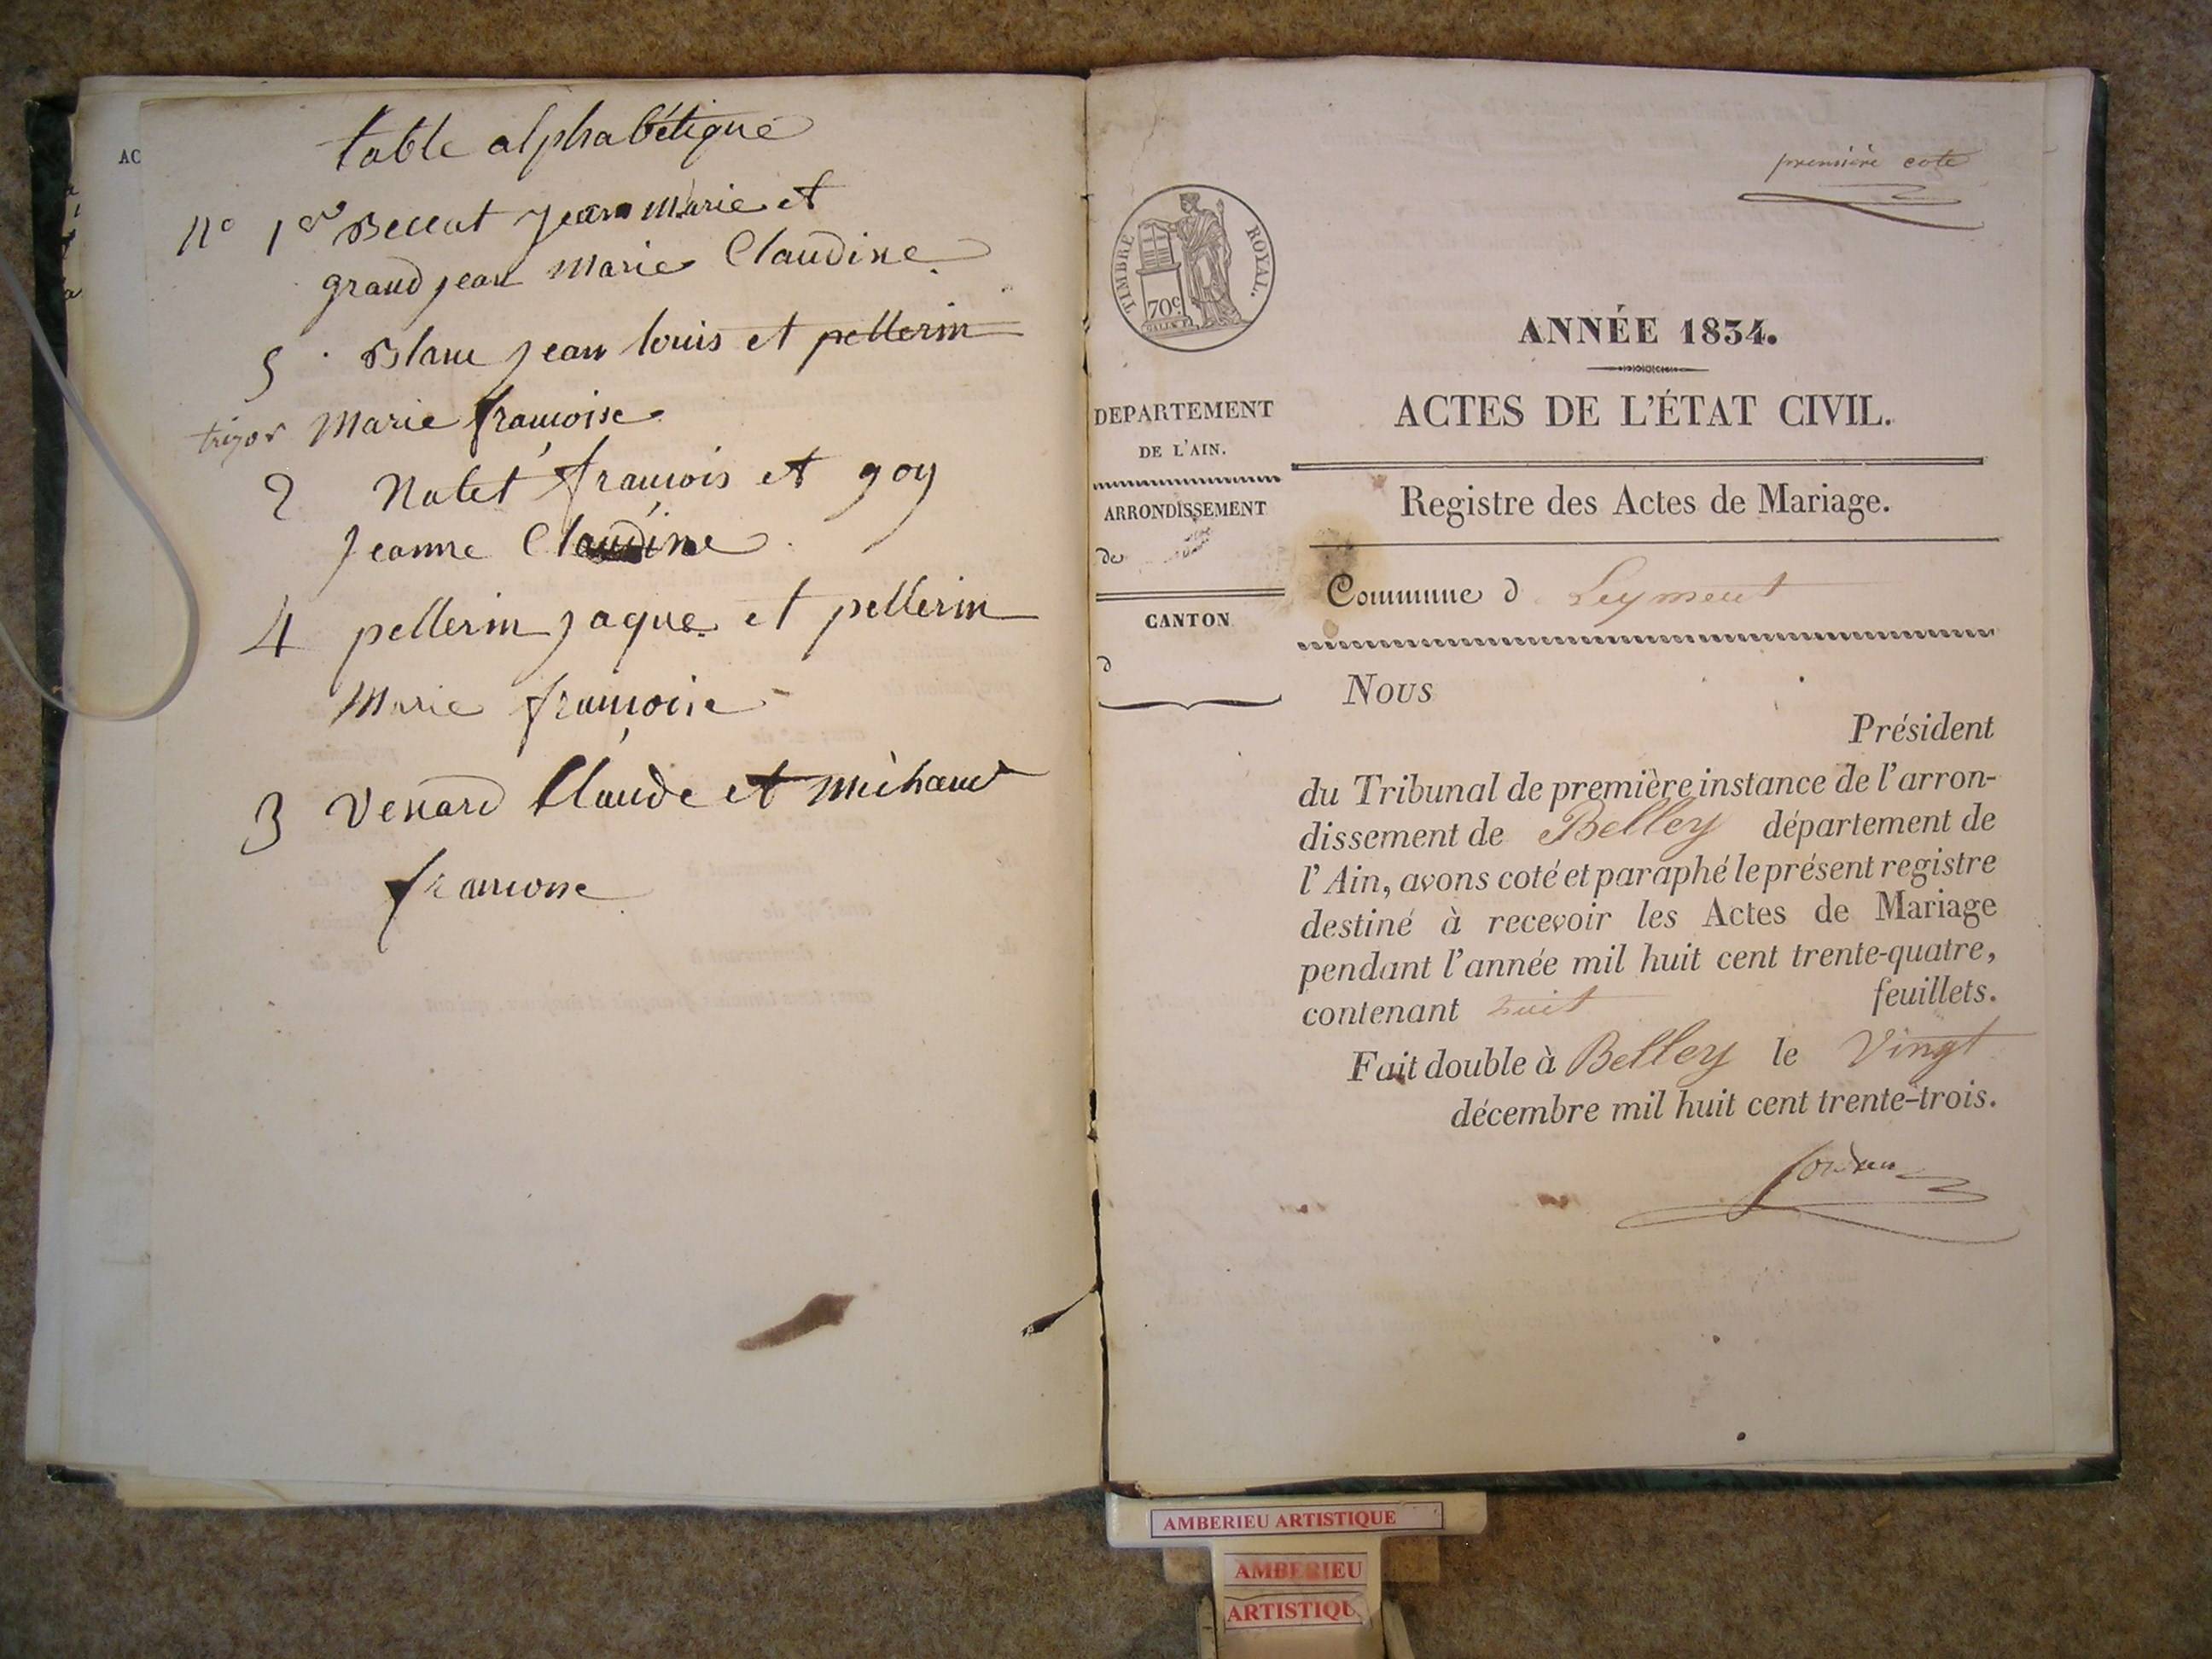 AC
table alphabétique
n° 1er Beccat Jean Marie et
grand jean Marie Claudine
5 Blanc jean louis et pellerin
trizor Marie francoise
2 Nalet francois et goy
Jeanne Claudine
4 pellerin jaque et pellerin
Marie francoise
3 Venard Claude et Michaud
francoise
première cote
TIMBRE ROYAL.
70c
DEPARTEMENT
DE L'AIN.
ARRONDISSEMENT
de
CANTON
d
ANNÉE 1834.
ACTES DE L'ÉTAT CIVIL.
Registre des Actes de Mariage.
Commune d Leyment
Nous
Président
du Tribunal de première instance de l'arron-
dissement de Belley département de
l'Ain, avons coté et paraphé le présent registre
destiné à recevoir les Actes de Mariage
pendant l'année mil huit cent trente-quatre,
contenant huit feuillets.
Fait double à Belley le Vingt
décembre mil huit cent trente-trois.
AMBERIEU ARTISTIQUE
AMBERIEU
ARTISTIQU